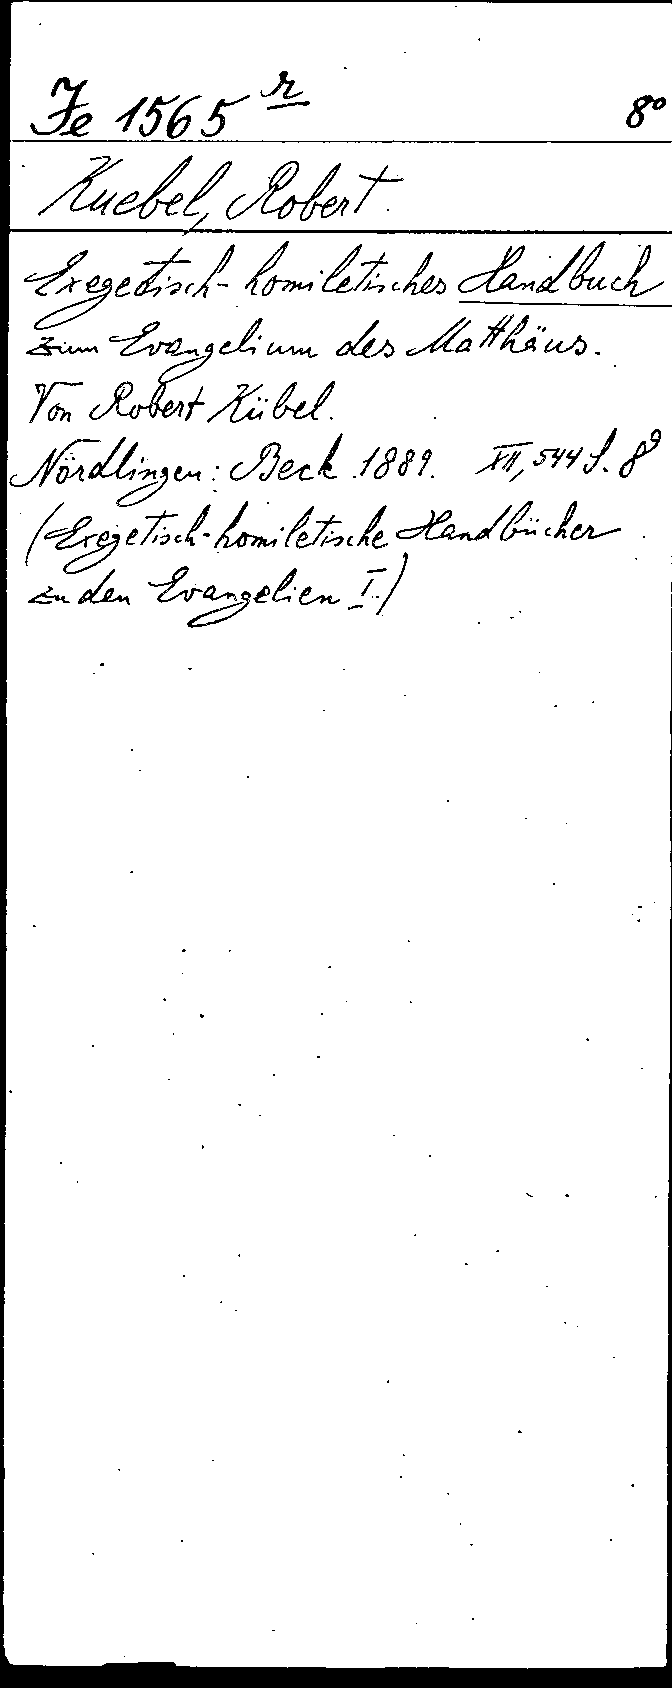 Fe 1565 r 8°
Kuebel, Robert.
Exegetisch-homiletisches Handbuch
zum Evangelium des Matthäus.
Von Robert Kübel.
Nördlingen: Beck 1889. XII, 544 S. 8°
(Exegetisch-homiletische Handbücher
zu den Evangelien I.)